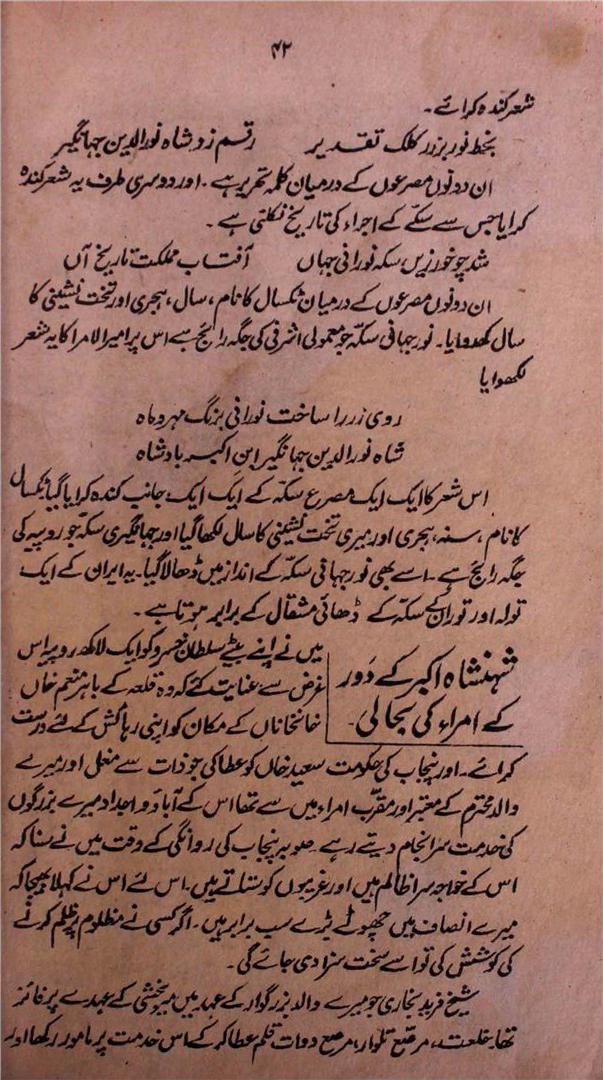 ۴۲
شعر کندہ کرائے۔
بخط نور بر زر کلک تقدیر رقم زد شاہ نورالدین جہانگیر
ان دونوں مصرعوں کے درمیان کلمہ تحریر ہے۔ اور دوسری طرف یہ شعر کندہ
کرایا جس سے سکّے کے اجراء کی تاریخ نکلتی ہے۔
شد چو خور زیں سکہ نورانی جہاں آفتاب مملکت تاریخ آں
ان دونوں مصرعوں کے درمیان ٹکسال کا نام، سال، ہجری اور تخت نشینی کا
سال کھدوایا۔ نور جہانی سکّہ جو معمولی اشرفی کی جگہ رائج ہے اس پر امیر الامرا کا یہ شعر
لکھوایا
روی زر را ساخت نورانی بزنگ مہر و ماہ
شاہ نورالدین جہانگیر ابن اکبر بادشاہ
اس شعر کا ایک ایک مصرع سکّہ کے ایک ایک جانب کندہ کرایا گیا ٹکسال
کا نام، سنہ، ہجری اور میری تخت نشینی کا سال لکھا گیا اور جہانگیری سکّہ جو روپیہ کی
جگہ رائج ہے۔ اسے بھی نور جہانی سکّہ کے انداز میں ڈھالا گیا۔ یہ ایران کے ایک
تولہ اور توران کے سکّہ کے ڈھائی مشقال کے برابر ہوتا ہے۔
شہنشاہ اکبر کے دَور
کے امراء کی بحالی۔
میں نے اپنے بیٹے سلطان خسرو کو ایک لاکھ روپیہ اس
غرض سے عنایت کئے کہ وہ قلعہ کے باہر منعم خاں
خانخاناں کے مکان کو اپنی رہائش کے لئے درست
کرائے۔ اور پنجاب کی حکومت سعید خاں کو عطا کی جو ذات سے مغل اور میرے
والد محترم کے معتبر اور مقرّب امراء میں سے تھا اس کے آباؤ اجداد میرے بزرگوں
کی خدمت سرانجام دیتے رہے۔ صوبہ پنجاب کی روانگی کے وقت میں نے سنا کہ
اس کے خواجہ سرا ظالم ہیں اور غریبوں کو ستاتے ہیں۔ اس لئے اس نے کہلا بھیجا کہ
میرے انصاف میں چھوٹے بڑے سب برابر ہیں۔ اگر کسی نے مظلوم پر ظلم کرنے
کی کوشش کی تو اسے سخت سزا دی جائے گی۔
شیخ فرید بخاری جو میرے والد بزرگوار کے عہد میں میر بخشی کے عہدے پر فائز
تھا۔ خلعت، مرصّع تلوار، مرصع دوات قلم عطا کر کے اس خدمت پر مامور رکھا اور